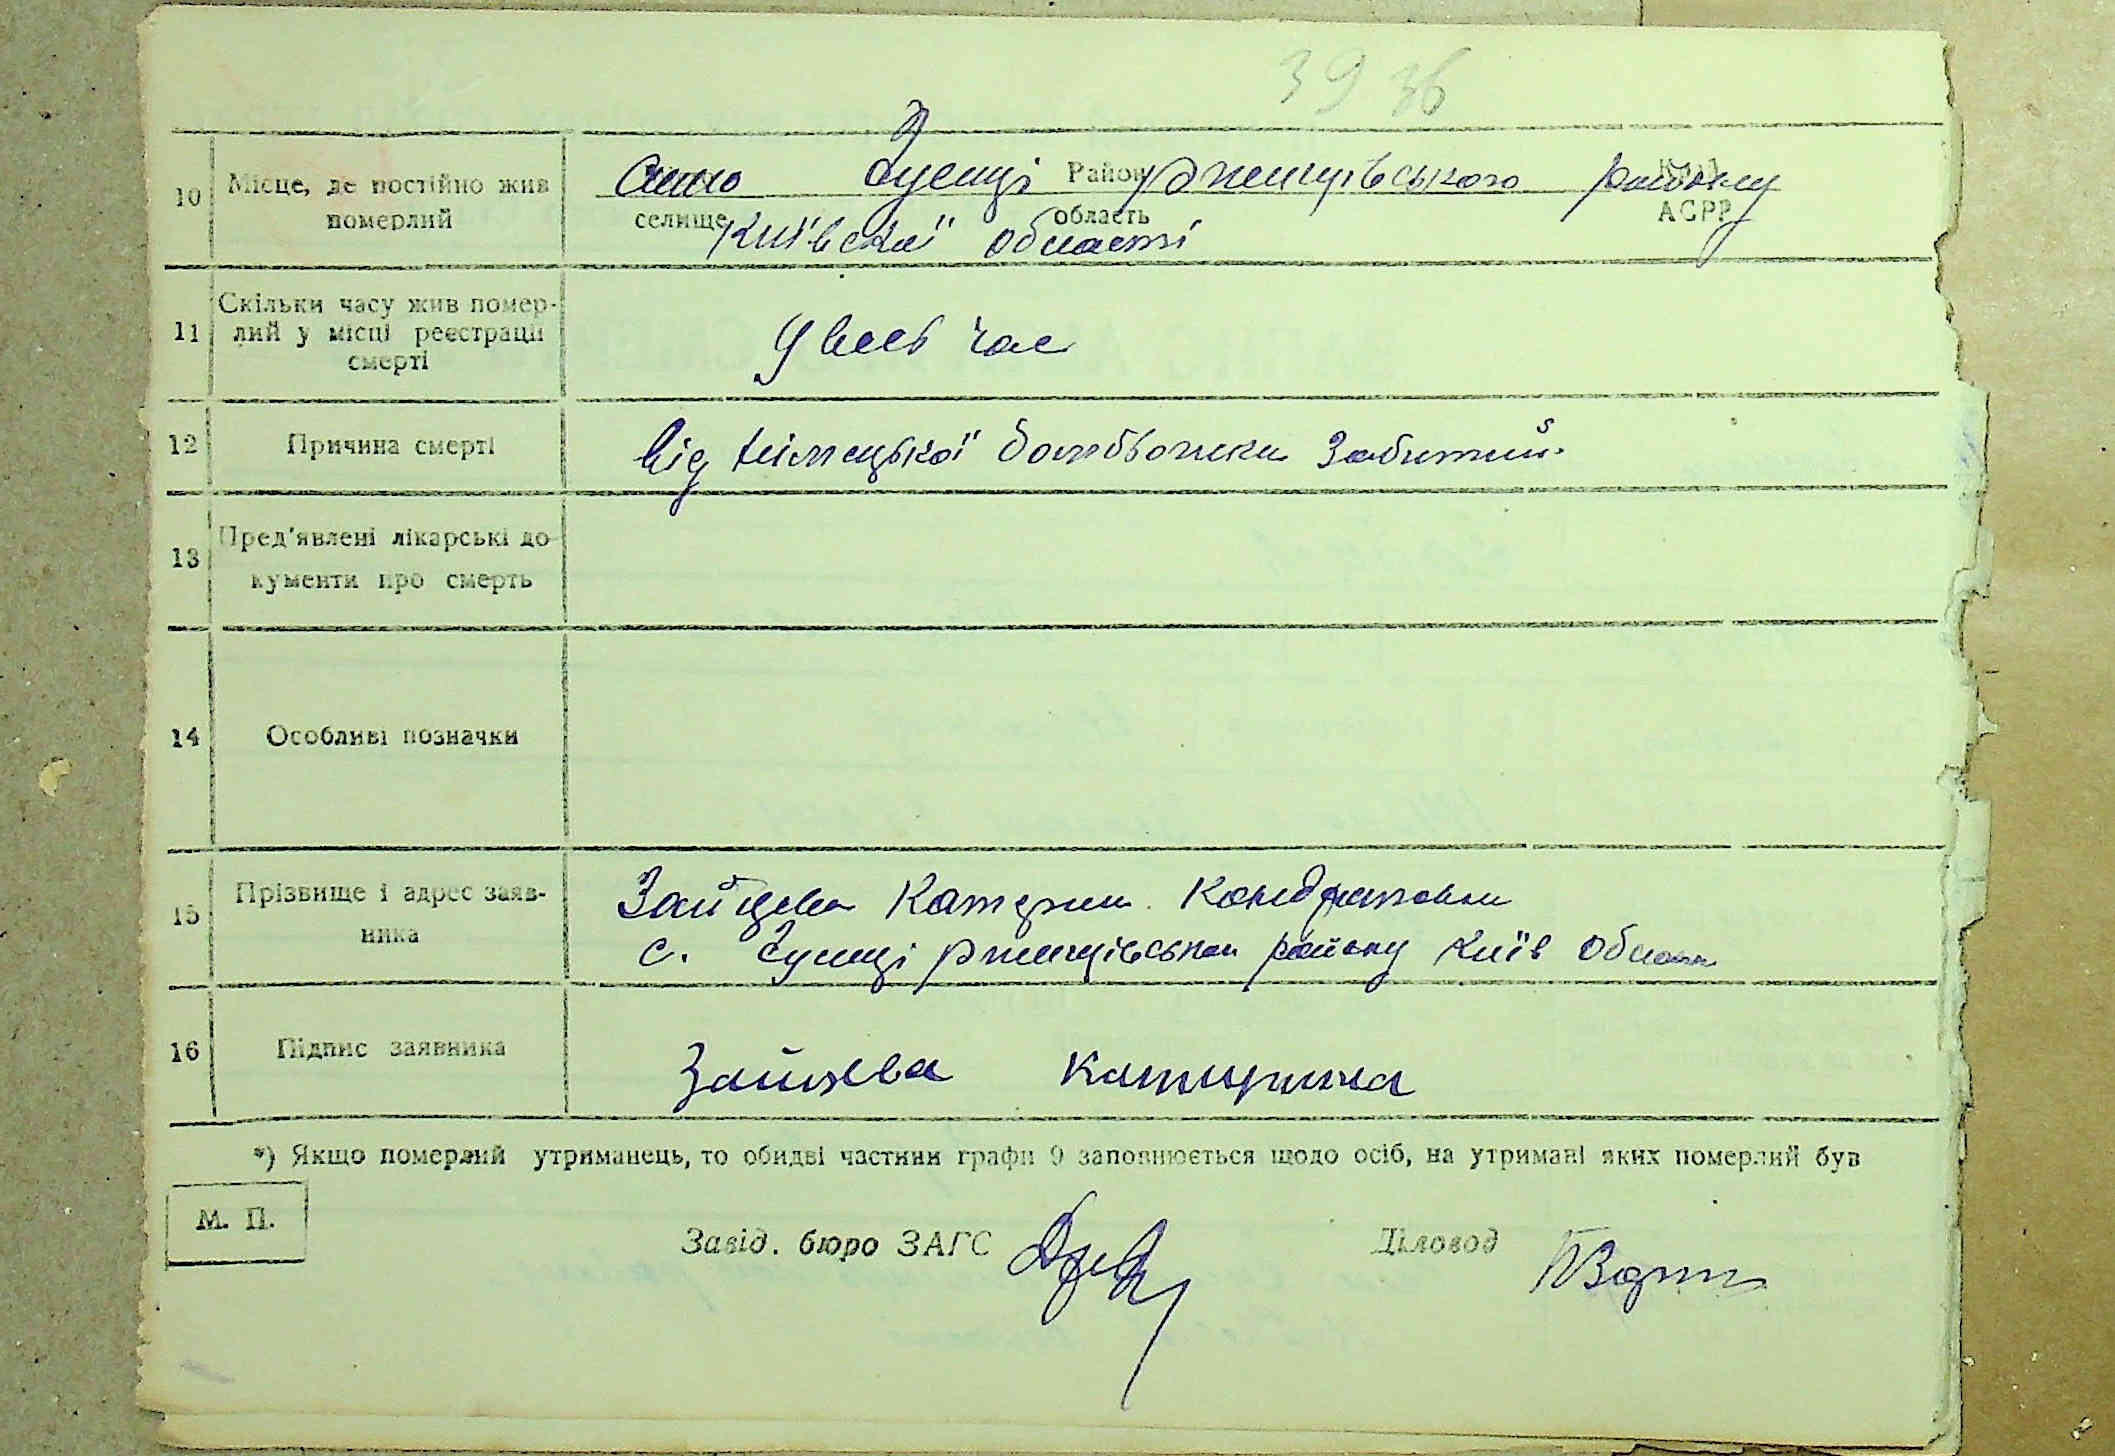 39 36
10 Місце, де постійно жив померлий
Село Зуенці Район Ржищівського району
селище область АСРР
Київської області
11 Скільки часу жив померлий у місці реєстрації смерті
Увесь час
12 Причина смерті
Від німецької бомбьожки Забитий.
13 Пред'явлені лікарські документи про смерть
14 Особливі позначки
15 Прізвище і адрес заявника
Зайцева Катерина Кондратовна
с. Ржищівська району Київ Област
16 Підпис заявника
Зайцева Катирина
*) Якщо померлий утриманець, то обидві частини графи 9 заповнюється щодо осіб, на утримані яких померлий був
М. П.
Завід. бюро ЗАГС Діловод